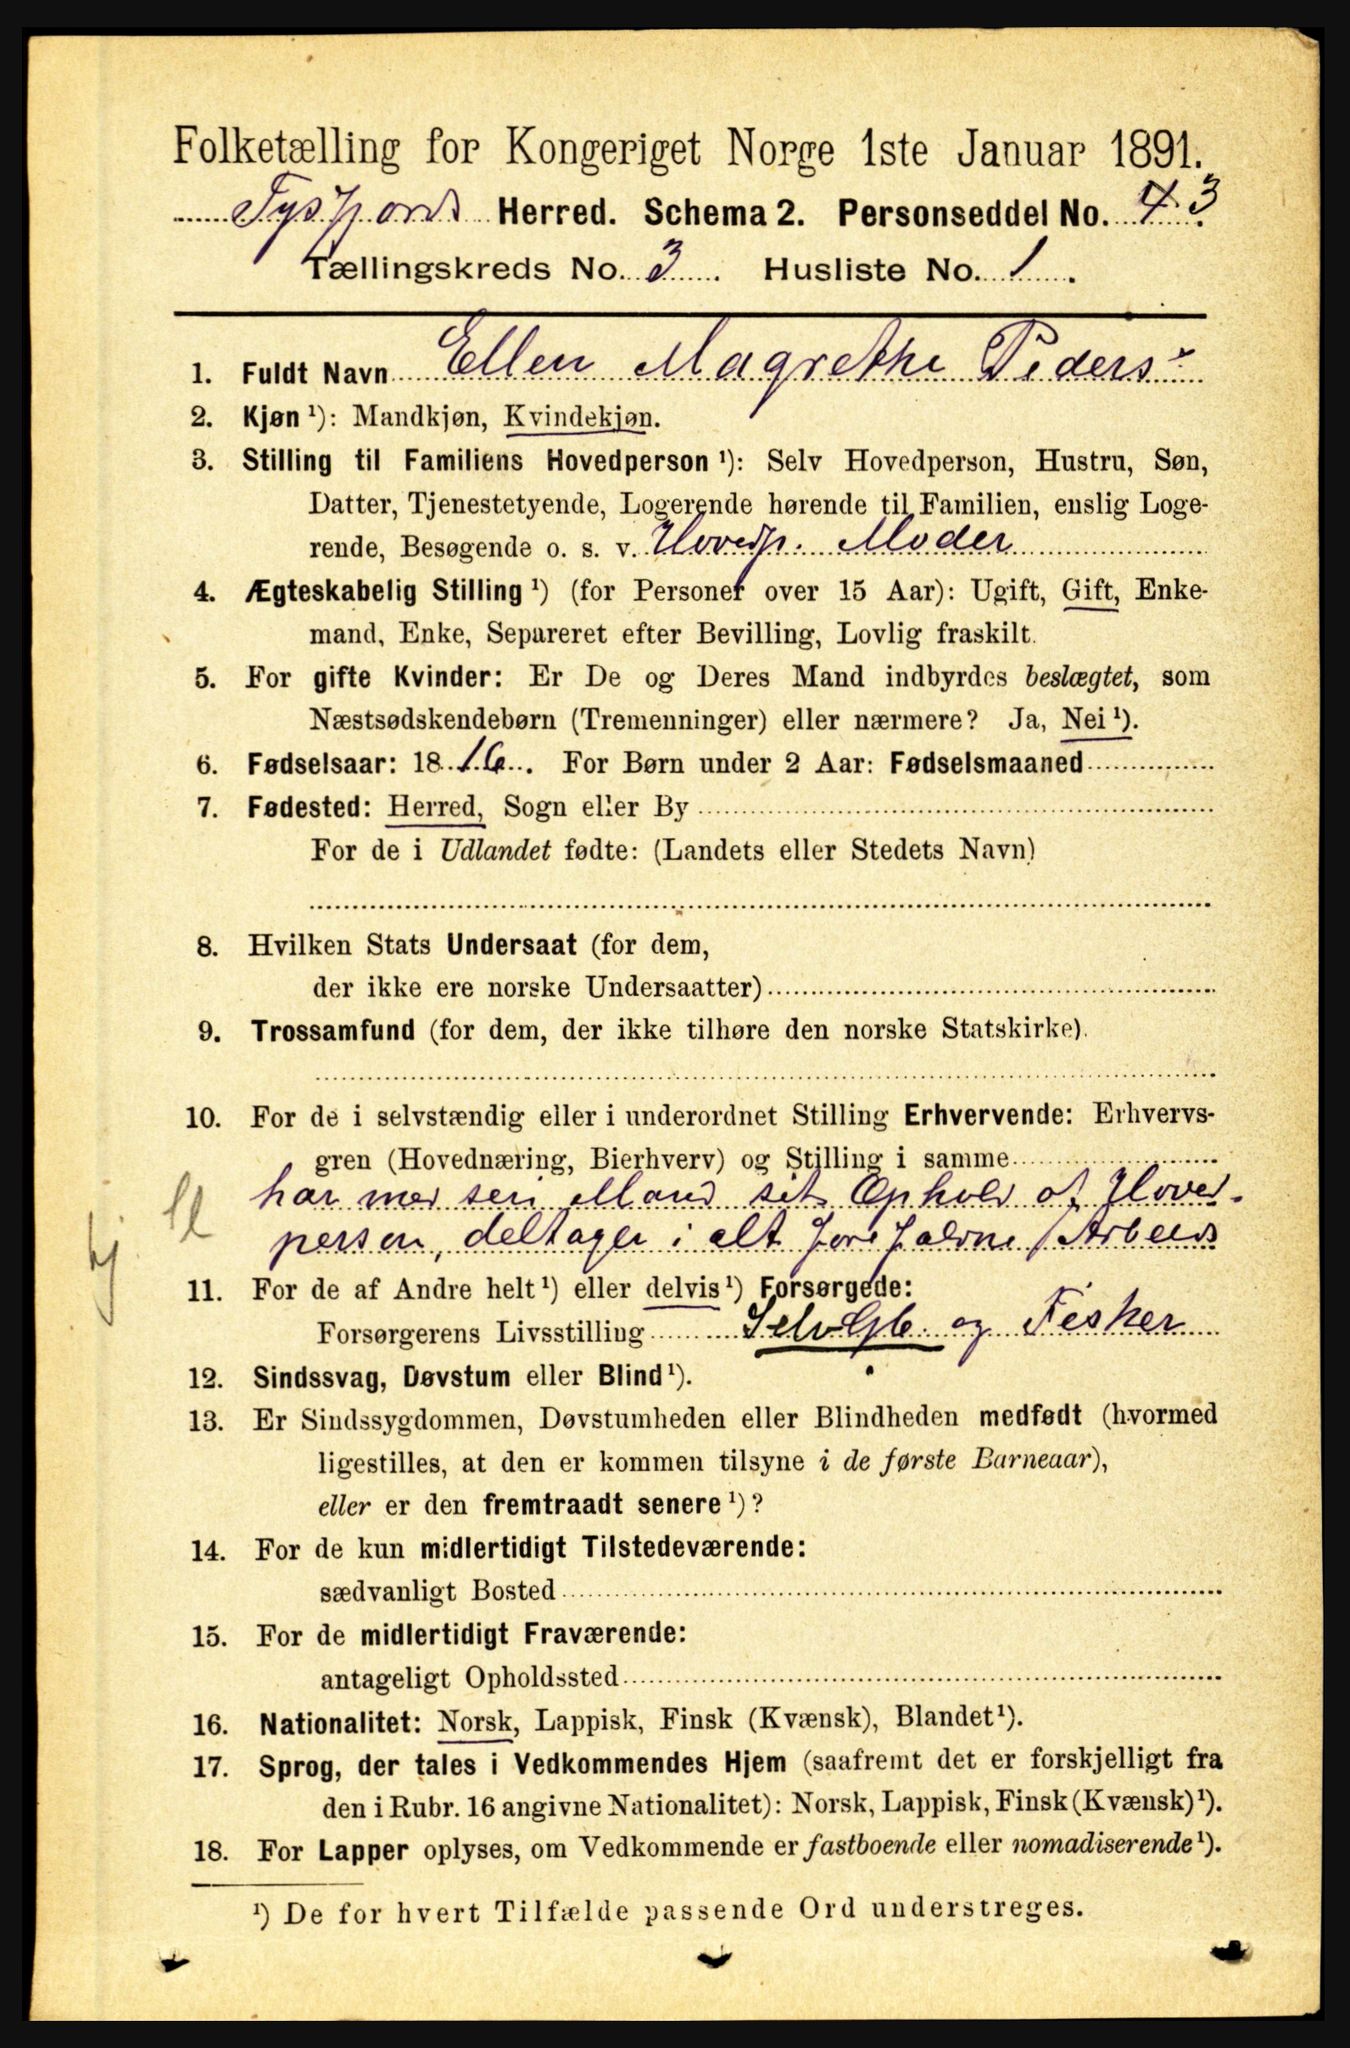 Folketælling for Kongeriget Norge 1ste Januar 1891.
Tysfjords Herred. Schema 2. Personseddel No. 43.
Tællingskreds No. 3. Husliste No. 1.
1. Fuldt Navn Ellen Magrethe Peders
2. Kjøn ¹): Mandkjøn, Kvindekjøn.
3. Stilling til Familiens Hovedperson ¹): Selv Hovedperson, Hustru, Søn,
Datter, Tjenestetyende, Logerende hørende til Familien, enslig Loge-
rende, Besøgende o. s. v. Hovedp. Moder
4. Ægteskabelig Stilling ¹) (for Personer over 15 Aar): Ugift, Gift, Enke-
mand, Enke, Separeret efter Bevilling, Lovlig fraskilt.
5. For gifte Kvinder: Er De og Deres Mand indbyrdes beslægtet, som
Næstsødskendebørn (Tremenninger) eller nærmere? Ja, Nei ¹).
6. Fødselsaar: 1816. For Børn under 2 Aar: Fødselsmaaned
7. Fødested: Herred, Sogn eller By
For de i Udlandet fødte: (Landets eller Stedets Navn)
8. Hvilken Stats Undersaat (for dem,
der ikke ere norske Undersaatter)
9. Trossamfund (for dem, der ikke tilhøre den norske Statskirke).
10. For de i selvstændig eller i underordnet Stilling Erhvervende: Erhvervs-
gren (Hovednæring, Bierhverv) og Stilling i samme
har med sin Mand sit Ophold af Hoved-
person, deltager i alt forefaldne Arbeids
11. For de af Andre helt ¹) eller delvis ¹) Forsørgede:
Forsørgerens Livsstilling Selv Gb. og Fisker
12. Sindssvag, Døvstum eller Blind ¹).
13. Er Sindssygdommen, Døvstumheden eller Blindheden medfødt (hvormed
ligestilles, at den er kommen tilsyne i de første Barneaar),
eller er den fremtraadt senere ¹)?
14. For de kun midlertidigt Tilstedeværende:
sædvanligt Bosted
15. For de midlertidigt Fraværende:
antageligt Opholdssted
16. Nationalitet: Norsk, Lappisk, Finsk (Kvænsk), Blandet ¹).
17. Sprog, der tales i Vedkommendes Hjem (saafremt det er forskjelligt fra
den i Rubr. 16 angivne Nationalitet): Norsk, Lappisk, Finsk (Kvænsk) ¹).
18. For Lapper oplyses, om Vedkommende er fastboende eller nomadiserende ¹).
¹) De for hvert Tilfælde passende Ord understreges.